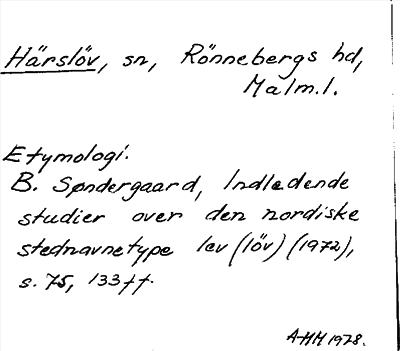 Härslöv, sn, Rönnebergs hd,
Malm.l.
Etymologi.
B. Søndergaard, Indledende
studier over den nordiske
stednavnetype lev (löv) (1972),
s. 75, 133ff.
AMH 1978.